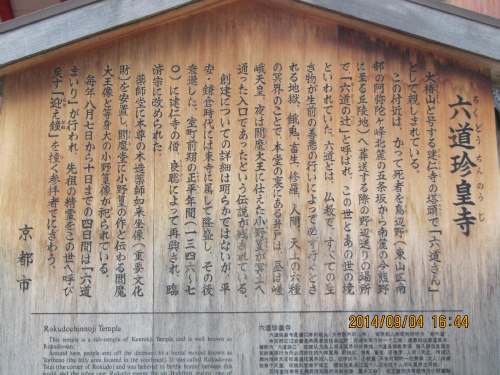 六道珍皇寺
ろくどうちんのうじ
大椿山と号する建仁寺の塔頭で「六道さん」
として親しまれている。
この付近は、かつて死者を鳥辺野(東山区南
部の阿弥陀ヶ峰北麓の五条坂から南麓の今熊野
に至る丘陵地)へ葬送する際の野辺送りの場所
で「六道の辻」と呼ばれ、この世とあの世の境
といわれていた。六道とは、仏教で、すべての生
き物が生前の善悪の行いによって必ず行くとさ
れる地獄、餓鬼、畜生、修羅、人間、天上の六種
の冥界のことで、本堂の裏にある井戸は、昼は嵯
峨天皇、夜は閻魔大王に仕えた小野篁が冥土へ
通った入口であったという伝説が残されている。
創建についての詳細は明らかではないが、平
安・鎌倉時代には東寺に属して隆盛し、その後
衰退した。室町前期の正平年間(一三四六〜七
〇)に建仁寺の僧、良聡によって再興され、臨
済宗に改められた。
薬師堂に本尊の木造薬師如来坐像(重要文化
財)を安置し、閻魔堂に小野篁の作と伝わる閻魔
大王像と等身大の小野篁像が祀られている。
毎年八月七日から十日までの四日間は「六道
まいり」が行われ、先祖の精霊をこの世へ呼び
戻す「迎え鐘」を撞く参拝者でにぎわう。
京都市
Rokudochinnoji Temple
This temple is a sub-temple of Kenninji Temple and is well known as
六道珍皇寺
2014/09/04 16:44